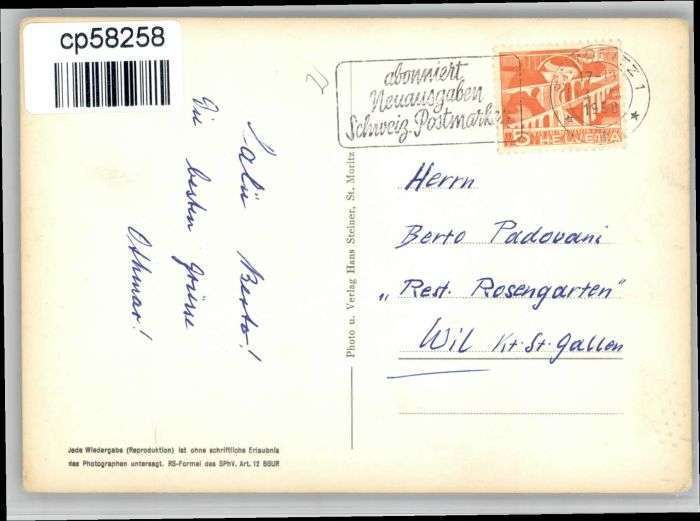 cp58258
abonniert
Neuausgaben
Schweiz. Postmarke
1
17
195
5 HELVETIA
Salü Berto!
Die besten Grüsse
Othmar!
Photo u. Verlag Hans Steiner, St. Moritz
Herrn
Berto Padovani
„Rest. Rosengarten"
Wil Kt. St. Gallen
Jede Wiedergabe (Reproduktion) ist ohne schriftliche Erlaubnis
des Photographen untersagt. RS-Formel des SPhV. Art. 12 BGUR